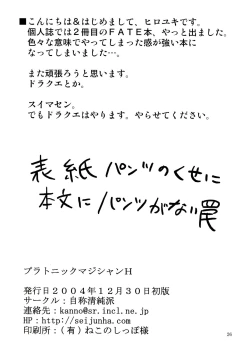 ■こんにちは&はじめまして、ヒロユキです。
個人誌では2冊目のFATE本、やっと出ました。
色々な意味でやってしまった感が強い本に
なってしまいました…。
また頑張ろうと思います。
ドラクエとか。
スイマセン。
でもドラクエはやります。やらせてください。
表紙パンツのくせに
本文にパンツがない罠
プラトニックマジシャンH
発行日2004年12月30日初版
サークル:自称清純派
連絡先:kanno@sr.incl.ne.jp
HP:http://seijunha.com
印刷所:(有)ねこのしっぽ様
26